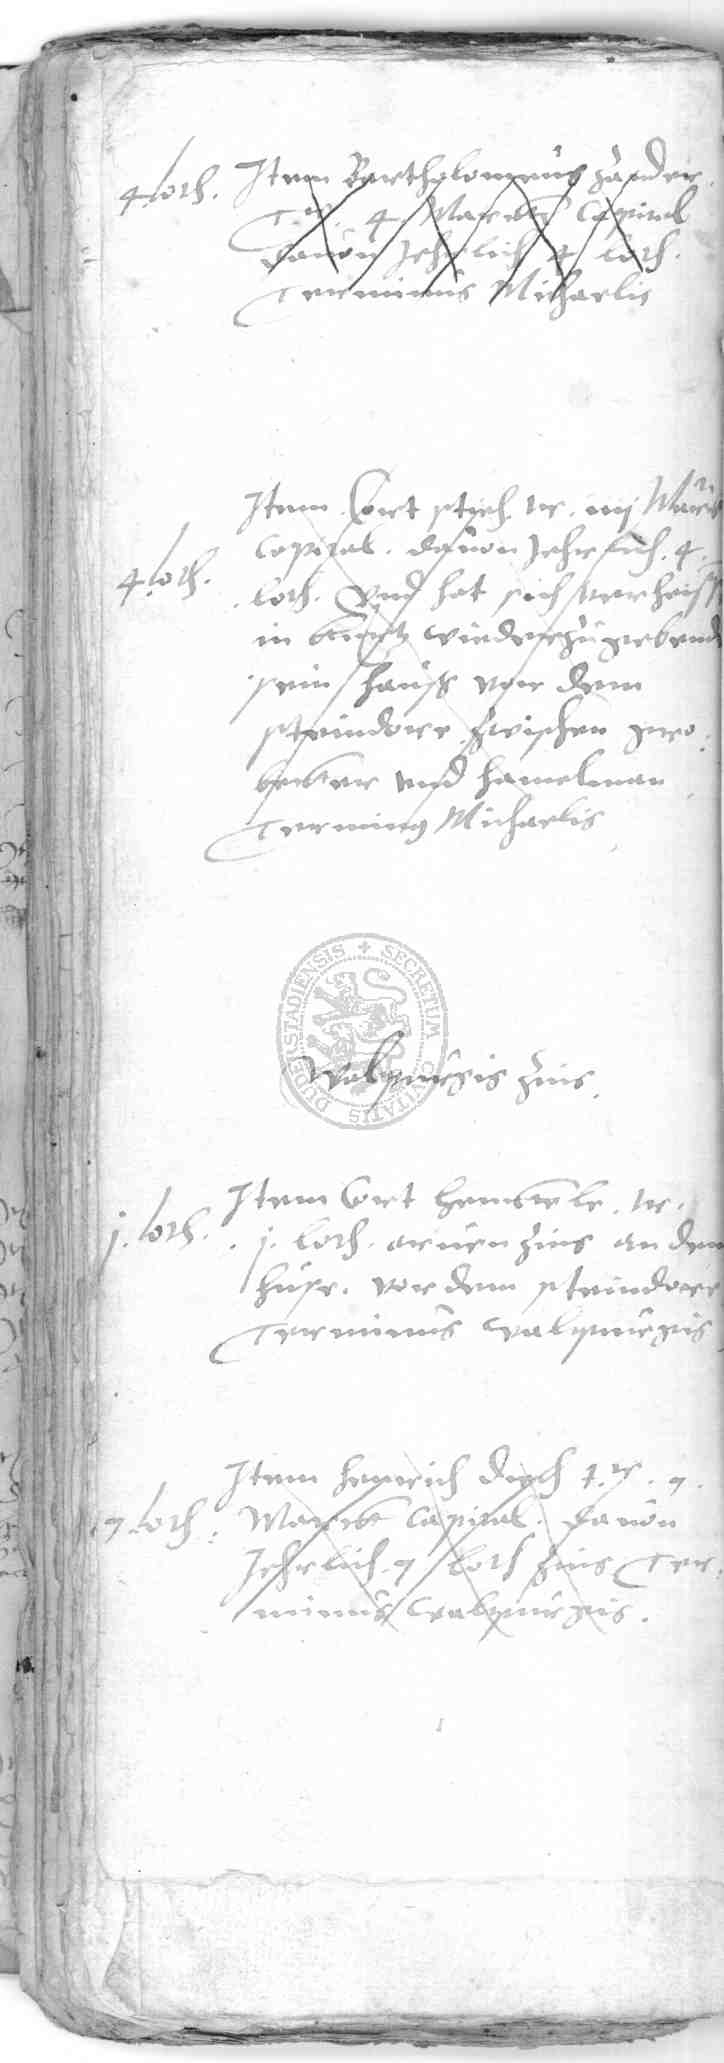 4 loth. Item Bartholomeus Zander
tr. 4 Marck Capital
dauon Jehrlich 4 loth.
Terminus Michaelis
Item Cort stich tr. iiij Marck
Capital. dauon Jehrlich. 4.
4 loth. loth. Vnd hat sich verheiss
in kurtz wiederzugebende
sein hauss vor dem
steindore zwischen gro
becker vnd hamelman
Terminus Michaelis
SECRETUM CIVITATIS DUDERSTADIENSIS
Walpurgis Zins.
Item Cort henckele. tr.
j. loth. j. loth. armen Zins an dem
huse. vor dem steindore
Terminus walpurgis
Item heinrich tr. 7.
7 loth. Marck Capital. dauon
Jehrlich 7 loth Zins Ter
minus walpurgis.